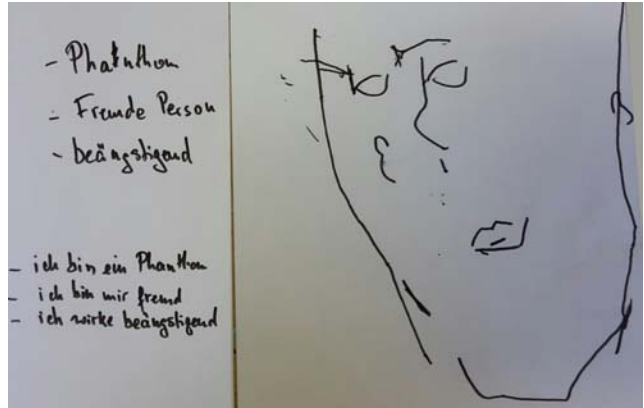 - Phanthom
- Fremde Person
- beängstigend
- ich bin ein Phanthom
- ich bin mir fremd
- ich wirke beängstigend